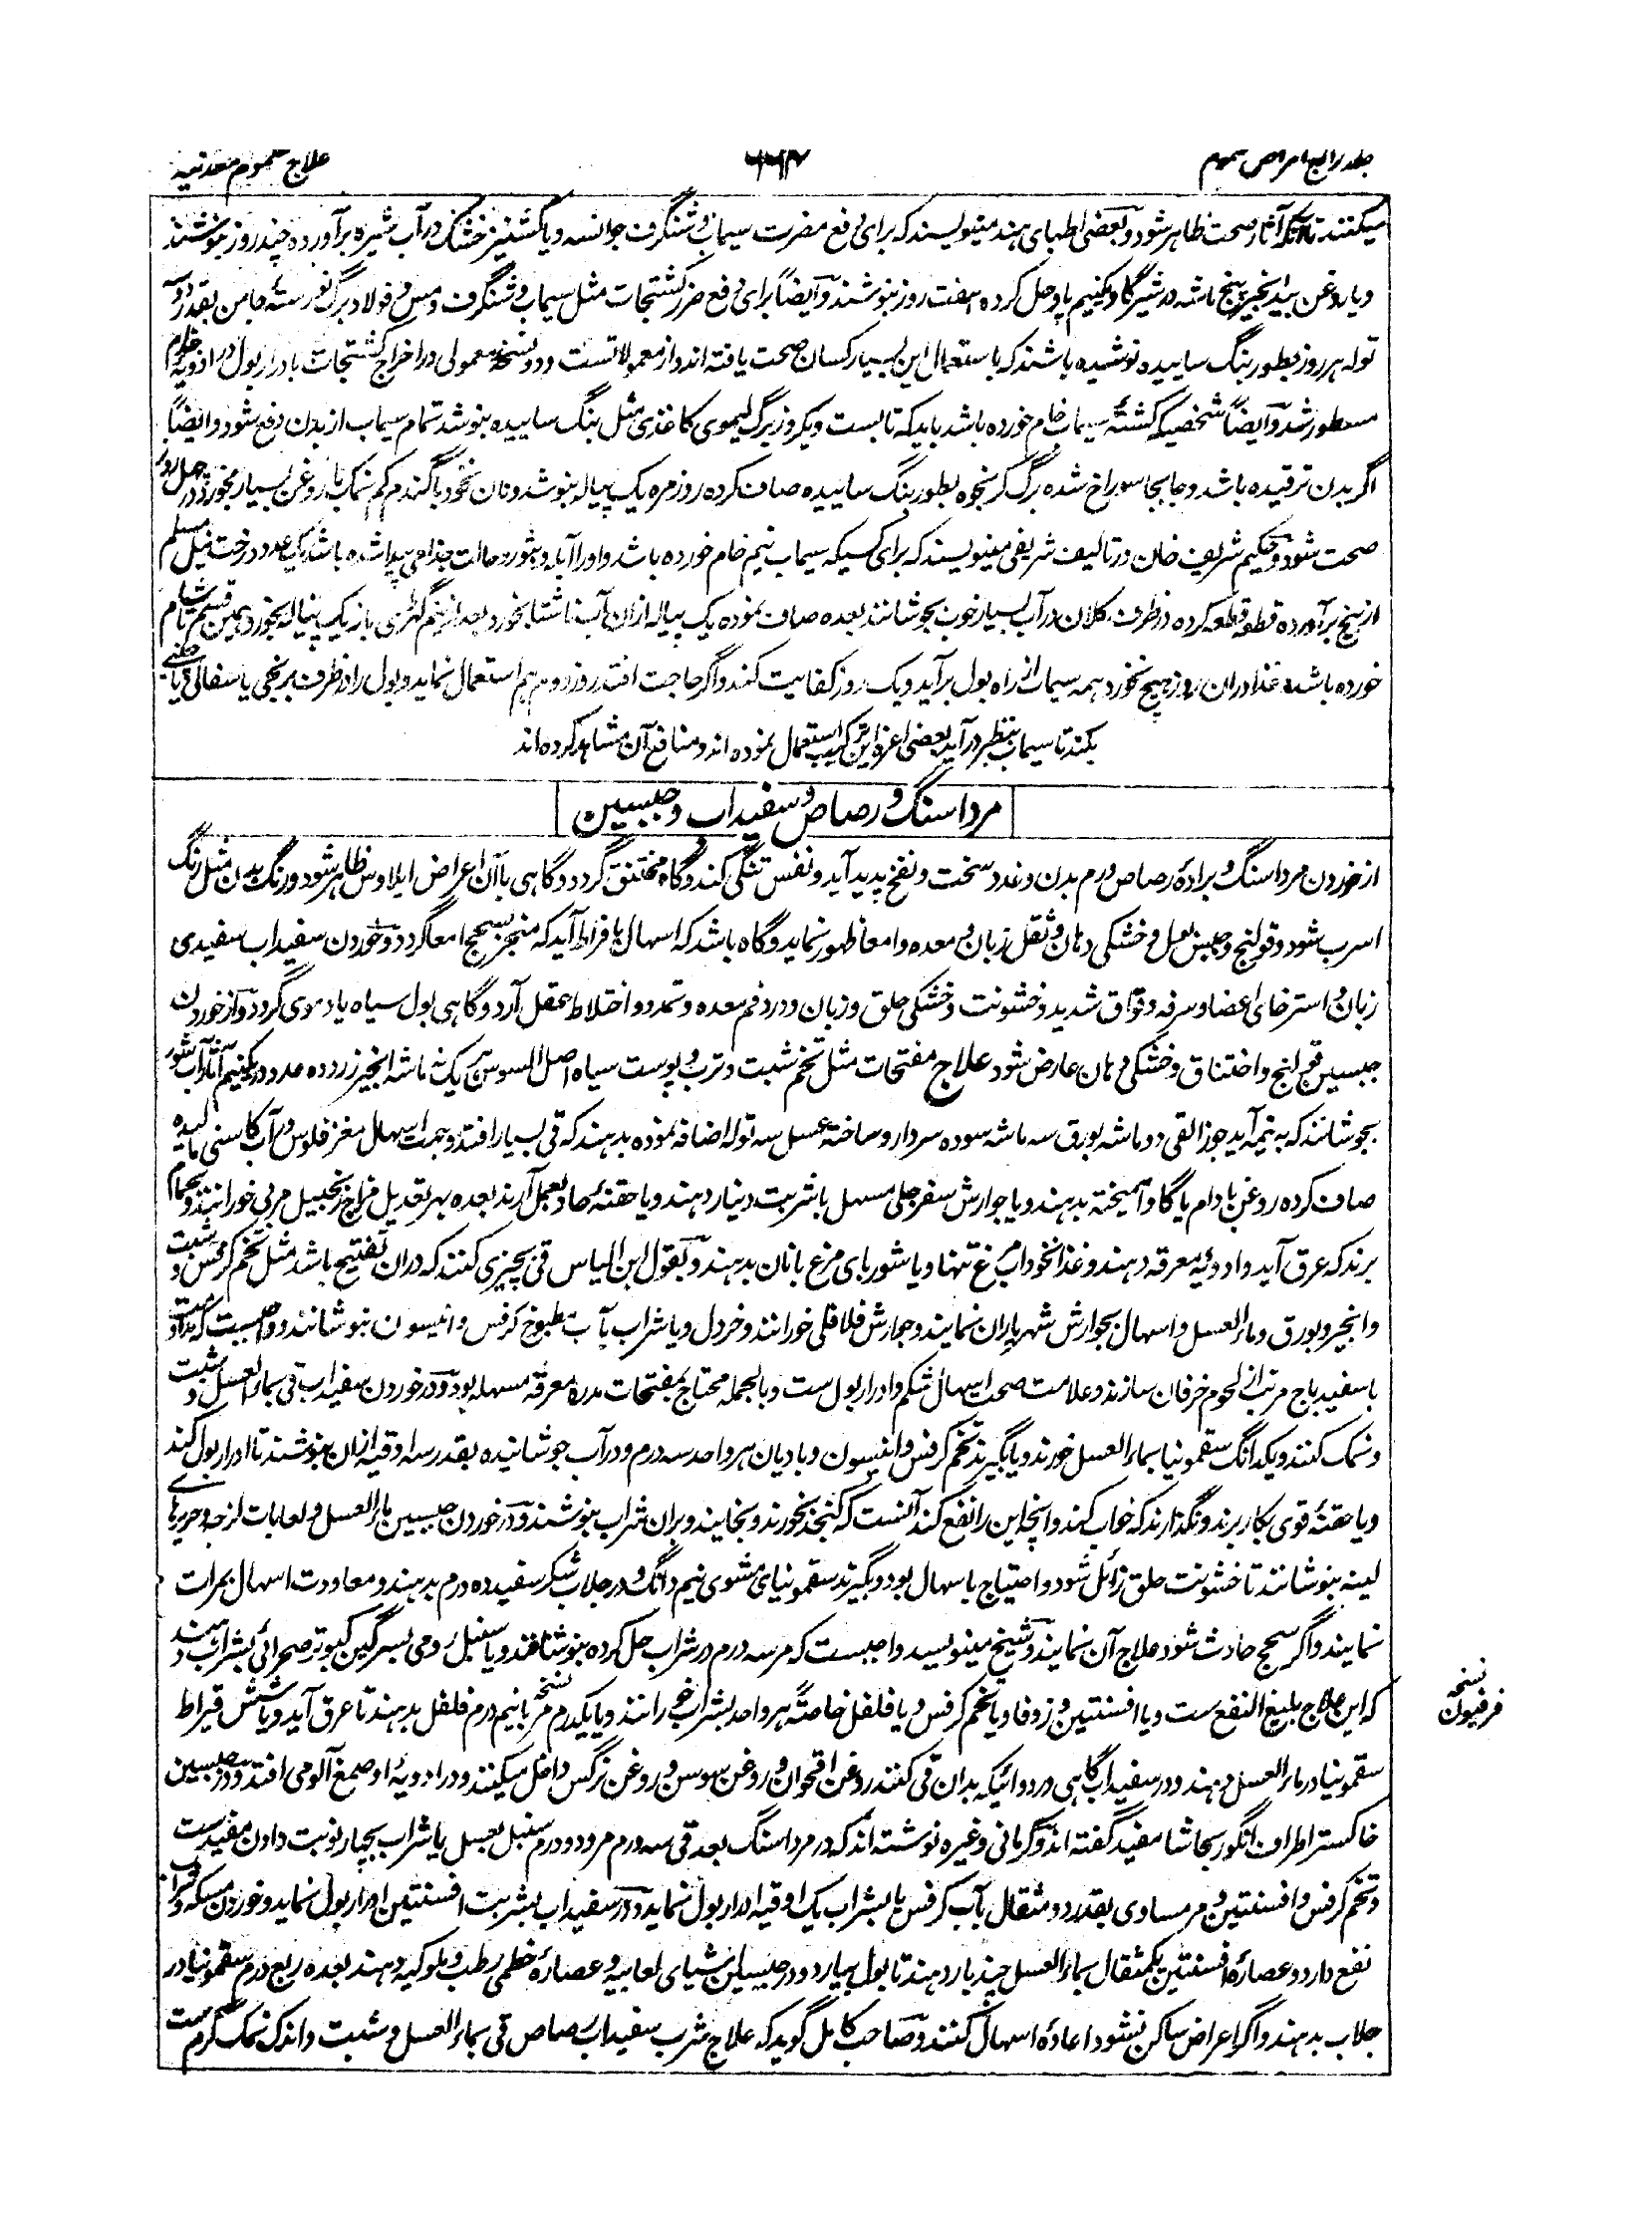 جلد رابع امراض سموم
۶۶۴
علاج سموم معدنیه
میکنند تا آنکه آثار صحت ظاهر شود و بعضی اطبای هند مینویسند که برای رفع مضرت سیماب و شنگرف جوانسه و یا کشنیز خشک در آب شیره برآورده چند روز بنوشند
و یا روغن بیدانجیر پنج ماشه در شیر گاو یکنیم پاو حل کرده هفت روز بنوشند و ایضاً برای رفع ضرر کشتجات مثل سیماب و شنگرف و مس و فولاد برگ نورسته جامن بقدر دو
توله هر روز بطور بنگ ساییده نوشیده باشند که باستعمال این بسیار کسان صحت یافته اند و از معمولاتست و دو نسخه معمولی در اخراج کشتجات بادرار بول در ادویه جذام
مسطور شد و ایضاً شخصیکه کشتۀ سیماب خام خورده باشد باید که تا بست و یکروز برگ لیموی کاغذی مثل بنگ ساییده بنوشد تمام سیماب از بدن دفع شود و ایضاً
اگر بدن ترقیده باشد و جابجا سوراخ شده برگ کرنجوه بطور بنگ ساییده صاف کرده روزمره یک پیاله بنوشد و نان نخود یا گندم کم نمک با روغن بسیار بخورد در چهل روز
صحت شود و حکیم شریف خان در تالیف شریفی مینویسند که برای کسیکه سیماب نیم خام خورده باشد و او را آبله و بثور و حالت جذامی پیدا شده باشد یک عدد درخت نیل مسلم
از بیخ برآورده قطعه قطعه کرده در ظرف کلان در آب بسیار خوب بجوشانند بعده صاف نموده یک پیاله ازان آب ناشتا بخورد بعد از نیم گهڑی باز یک پیاله بخورد بهمین قسم تا شام
خورده باشد و غذا دران روز هیچ نخورد همه سیماب از راه بول برآید و یک روز کفایت کند و اگر حاجت افتد روز دوم هم استعمال نماید و بول را در ظرف برنجی یا سفالی یا چینی
بکند تا سیماب بنظر درآید بعضی اعزه این ترکیب استعمال نموده اند و منافع آن مشاهده کرده اند
مرداسنگ و رصاص و سفیداب و جبسین
از خوردن مرداسنگ و براده رصاص ورم بدن و غدد سخت و نفخ پدید آید و نفس تنگی کند و گاه مختنق گردد و گاهی با آن اعراض ایلاوس ظاهر شود و رنگ بدن مثل رنگ
اسرب شود و قولنج و حبس بول و خشکی دهان و ثقل زبان و معده و امعا ظهور نماید و گاه باشد که اسهال بافراط آید که منجر بسحج امعا گردد و خوردن سفیداب سفیدی
زبان و استرخای اعضا و سرفه و فواق شدید و خشونت و خشکی حلق و زبان و درد فم معده و تمدد و اختلاط عقل آرد و گاهی بول سیاه یا دموی گردد و از خوردن
جبسین قولنج و اختناق و خشکی دهان عارض شود علاج مفتحات مثل تخم شبت و ترب و پوست سیاه اصل السوس هر یک نه ماشه انجیر زرد ده عدد در یکنیم آثار آب شور
بجوشانند که به نیمه آید جوز القی دو ماشه بورق سه ماشه سوده سردارو ساخته عسل سه توله اضافه نموده بدهند که قی بسیار افتد و بجهت اسهال مغز فلوس در آب کاسنی مالیده
صاف کرده روغن بادام یا گاو آمیخته بدهند و یا جوارش سفرجلی مسهل با شربت دینار دهند و یا حقنۀ حاد بعمل آرند بعده بهر تعدیل مزاج زنجبیل مربی خورانند و بحمام
برند که عرق آید و ادویه معرقه دهند و غذا نخوداب مرغ تنها و یا شوربای مرغ با نان بدهند و بقول ابن الیاس قی بچیزی کنند که دران تفتیح باشد مثل تخم کرفس و شبت
و انجیر و بورق و ماء العسل و اسهال بجوارش شهریاران نمایند و جوارش فلافلی خورانند و خردل و یا شراب یا آب مطبوخ کرفس و انیسون بنوشانند و واجبست که مداومت
باسفیدباج مرتب از لحوم خرفان سازند و علامت صحت اسهال شکم و ادرار بول ست و بالجمله محتاج بمفتحات مدره معرقه مسهله بود و در خوردن سفیداب قی بماء العسل و شبت
و نمک کنند و یکدانگ سقمونیا بماء العسل خورند و یا بگیرند تخم کرفس و انیسون و بادیان هر واحد سه درم و در آب جوشانیده بقدر سه اوقیه ازان بنوشند تا ادرار بول کند
و یا حقنۀ قوی بکار برند و نگذارند که خواب کند و آنچه این را نفع کند آنست که کنجد بخورند و بخایند و بران شراب بنوشند و در خوردن جبسین ماء العسل و لعابات لزجه و حریرهای
لینه بنوشانند تا خشونت حلق زائل شود و احتیاج باسهال بود و بگیرند سقمونیای مشوی نیم دانگ و در جلاب شکر سفید ده درم بدهند و معاودت اسهال بمرات
نمایند و اگر سحج حادث شود علاج آن نمایند و شیخ مینویسد واجبست که مر سه درم در شراب حل کرده بنوشانند و یا سنبل رومی بسرگین کبوتر صحرائی بشراب دهند
که این علاج بلیغ النفع ست و یا افسنتین و زوفا و یا تخم کرفس و یا فلفل خاصتۀ هر واحد بشراب خورانند و یا یکدرم مر با نیم درم فلفل بدهند تا عرق آید و یا شش قیراط
نسخه
نسخه فرفیون
سقمونیا در ماء العسل دهند و در سفیداب گاهی در دوائیکه بدان قی کنند روغن اقحوان و روغن سوسن و روغن نرگس داخل میکنند و در ادویۀ او صمغ آلو می افتد و در جبسین
خاکستر اطراف انگور بحاشا مفید گفته اند و کرمانی و غیره نوشته اند که در مرداسنگ بعد قی سه درم مر و دو درم سنبل بعسل یا شراب بچهار نوبت دادن مفید ست
و تخم کرفس و افسنتین و مر مساوی بقدر دو مثقال بآب کرفس یا بشراب یک اوقیه ادرار بول نماید و در سفیداب بشربت افسنتین ادرار بول نماید و خوردن مسکه و شراب
نفع دارد و عصارۀ افسنتین یکمثقال بماء العسل چند بار دهند تا بول بیارد و در جبسین اشیای لعابیه و عصارۀ خطمی رطب و ملوکیه دهند بعده ربع درم سقمونیا در
جلاب بدهند و اگر اعراض ساکن نشود اعادۀ اسهال کنند و صاحب کامل گوید که علاج شرب سفیداب رصاص قی بماء العسل و شبت و اندک نمک گرم ست